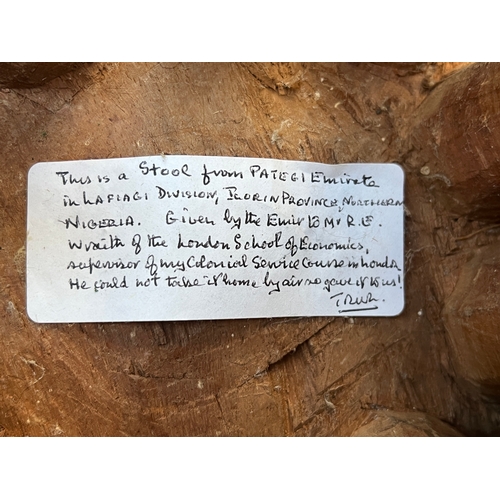 This is a Stool from PATEGI Emirate
in LAFIAGI DIVISION, ILORIN PROVINCE, NORTHERN
NIGERIA. Given by the Emir to Mr R.E.
Wraith of the London School of Economics,
supervisor of my Colonial Service Course in London
He could not take it home by air so gave it to us!